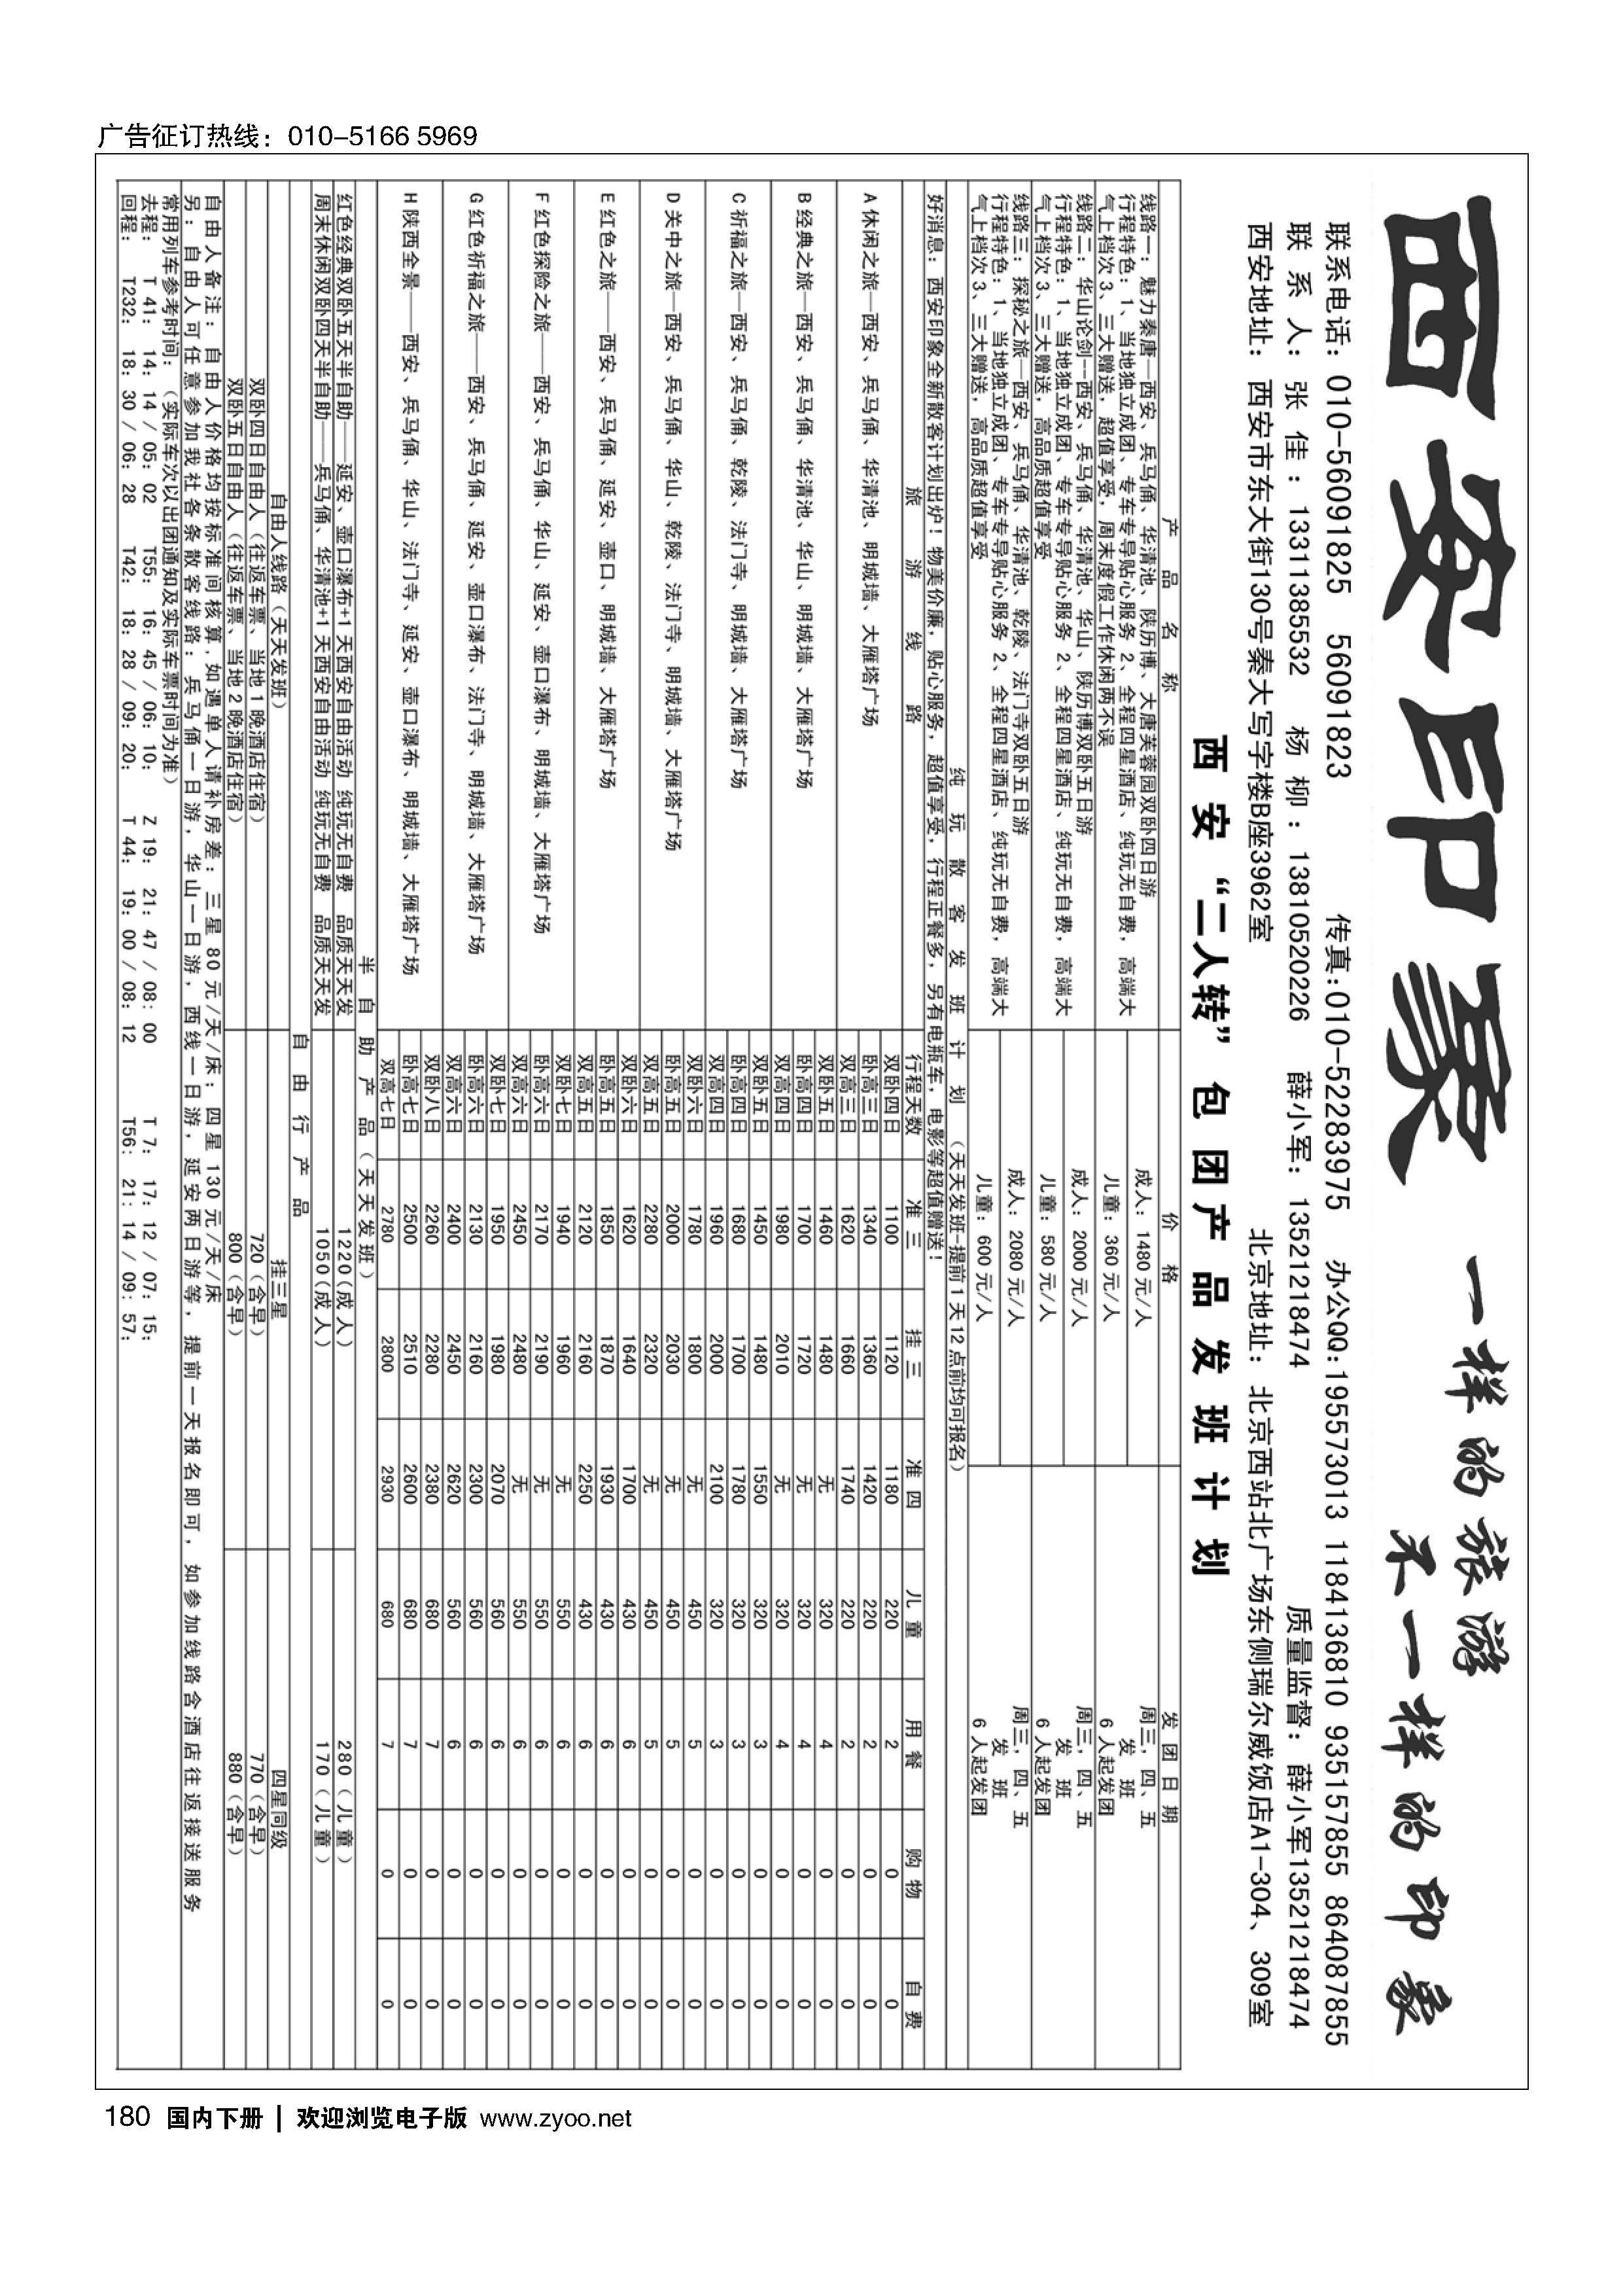 广告征订热线：010-5166 5969
西安印象
一样的旅游
不一样的印象
联系电话：010-56091825 56091823 传真:010-52283975 办公QQ:195573013 1184136810 935157855 864087855
联系人：张 佳：13311385532 杨 柳：13810520226 薛小军：13521218474 质量监督：薛小军13521218474
西安地址：西安市东大街130号秦大写字楼B座3962室 北京地址：北京西站北广场东侧瑞尔威饭店A1-304、309室
西安“二人转”包团产品发班计划
产品名称 价格 发团日期
线路一：魅力秦唐—西安、兵马俑、华清池、陕历博、大唐芙蓉园双卧四日游 成人：1480 元/人 周三，四、五
行程特色：1、当地独立成团、专车专导贴心服务 2、全程四星酒店、纯玩无自费，高端大 发 班
气上档次 3、三大赠送，超值享受，周末度假工作休闲两不误 儿童：360 元/人 6 人起发团
线路二：华山论剑--西安、兵马俑、华清池、华山、陕历博双卧五日游 成人：2000 元/人 周三，四、五
行程特色：1、当地独立成团、专车专导贴心服务 2、全程四星酒店、纯玩无自费，高端大 发 班
气上档次 3、三大赠送，高品质超值享受 儿童：580 元/人 6 人起发团
线路三：探秘之旅—西安、兵马俑、华清池、乾陵、法门寺双卧五日游 成人：2080 元/人 周三，四、五
行程特色：1、当地独立成团、专车专导贴心服务 2、全程四星酒店、纯玩无自费，高端大 发 班
气上档次 3、三大赠送，高品质超值享受 儿童：600 元/人 6 人起发团
纯玩散客发班计划（天天发班-提前 1 天 12 点前均可报名）
好消息：西安印象全新散客计划出炉！物美价廉，贴心服务，超值享受，行程正餐多，另有电瓶车，电影等超值赠送！
旅游线路 行程天数 准三 挂三 准四 儿童 用餐 购物 自费
A 休闲之旅—西安、兵马俑、华清池、明城墙、大雁塔广场 双卧四日 1100 1120 1180 220 2 0 0
卧高三日 1340 1360 1420 220 2 0 0
双高三日 1620 1660 1740 220 2 0 0
B 经典之旅—西安、兵马俑、华清池、华山、明城墙、大雁塔广场 双卧五日 1460 1480 无 320 4 0 0
卧高四日 1700 1720 无 320 4 0 0
双高四日 1980 2010 无 320 4 0 0
C 祈福之旅—西安、兵马俑、乾陵、法门寺、明城墙、大雁塔广场 双卧五日 1450 1480 1550 320 3 0 0
卧高四日 1680 1700 1780 320 3 0 0
双高四日 1960 2000 2100 320 3 0 0
D 关中之旅—西安、兵马俑、华山、乾陵、法门寺、明城墙、大雁塔广场 双卧六日 1780 1800 无 450 5 0 0
卧高五日 2000 2030 无 450 5 0 0
双高五日 2280 2320 无 450 5 0 0
E 红色之旅——西安、兵马俑、延安、壶口、明城墙、大雁塔广场 双卧六日 1620 1640 1700 430 6 0 0
卧高五日 1850 1870 1930 430 6 0 0
双高五日 2120 2160 2250 430 6 0 0
F 红色探险之旅——西安、兵马俑、华山、延安、壶口瀑布、明城墙、大雁塔广场 双卧七日 1940 1960 无 550 6 0 0
卧高六日 2170 2190 无 550 6 0 0
双高六日 2450 2480 无 550 6 0 0
G 红色祈福之旅——西安、兵马俑、延安、壶口瀑布、法门寺、明城墙、大雁塔广场 双卧七日 1950 1980 2070 560 6 0 0
卧高六日 2130 2160 2300 560 6 0 0
双高六日 2400 2450 2620 560 6 0 0
H 陕西全景——西安、兵马俑、华山、法门寺、延安、壶口瀑布、明城墙、大雁塔广场 双卧八日 2260 2280 2380 680 7 0 0
卧高七日 2500 2510 2600 680 7 0 0
双高七日 2780 2800 2930 680 7 0 0
半自助产品（天天发班）
红色经典双卧五天半自助——延安、壶口瀑布+1 天西安自由活动 纯玩无自费 品质天天发 1220(成人) 280（儿童）
周末休闲双卧四天半自助——兵马俑、华清池+1 天西安自由活动 纯玩无自费 品质天天发 1050(成人) 170（儿童）
自由行产品
自由人线路（天天发班） 挂三星 四星同级
双卧四日自由人（往返车票、当地 1 晚酒店住宿） 720（含早） 770（含早）
双卧五日自由人（往返车票、当地 2 晚酒店住宿） 800（含早） 880（含早）
自由人备注：自由人价格均按标准间核算，如遇单人请补房差：三星 80 元/天/床；四星 130 元/天/床
另：自由人可任意参加我社各条散客线路：兵马俑一日游，华山一日游，西线一日游，延安两日游等，提前一天报名即可，如参加线路含酒店往返接送服务
常用列车参考时间：（实际车次以出团通知及实际车票时间为准）
去程： T 41: 14: 14 / 05: 02 T55: 16: 45 / 06: 10: Z 19: 21: 47 / 08: 00 T 7: 17: 12 / 07: 15:
回程： T232: 18: 30 / 06: 28 T42: 18: 28 / 09: 20: T 44: 19: 00 / 08: 12 T56: 21: 14 / 09: 57:
180 国内下册 | 欢迎浏览电子版 www.zyoo.net